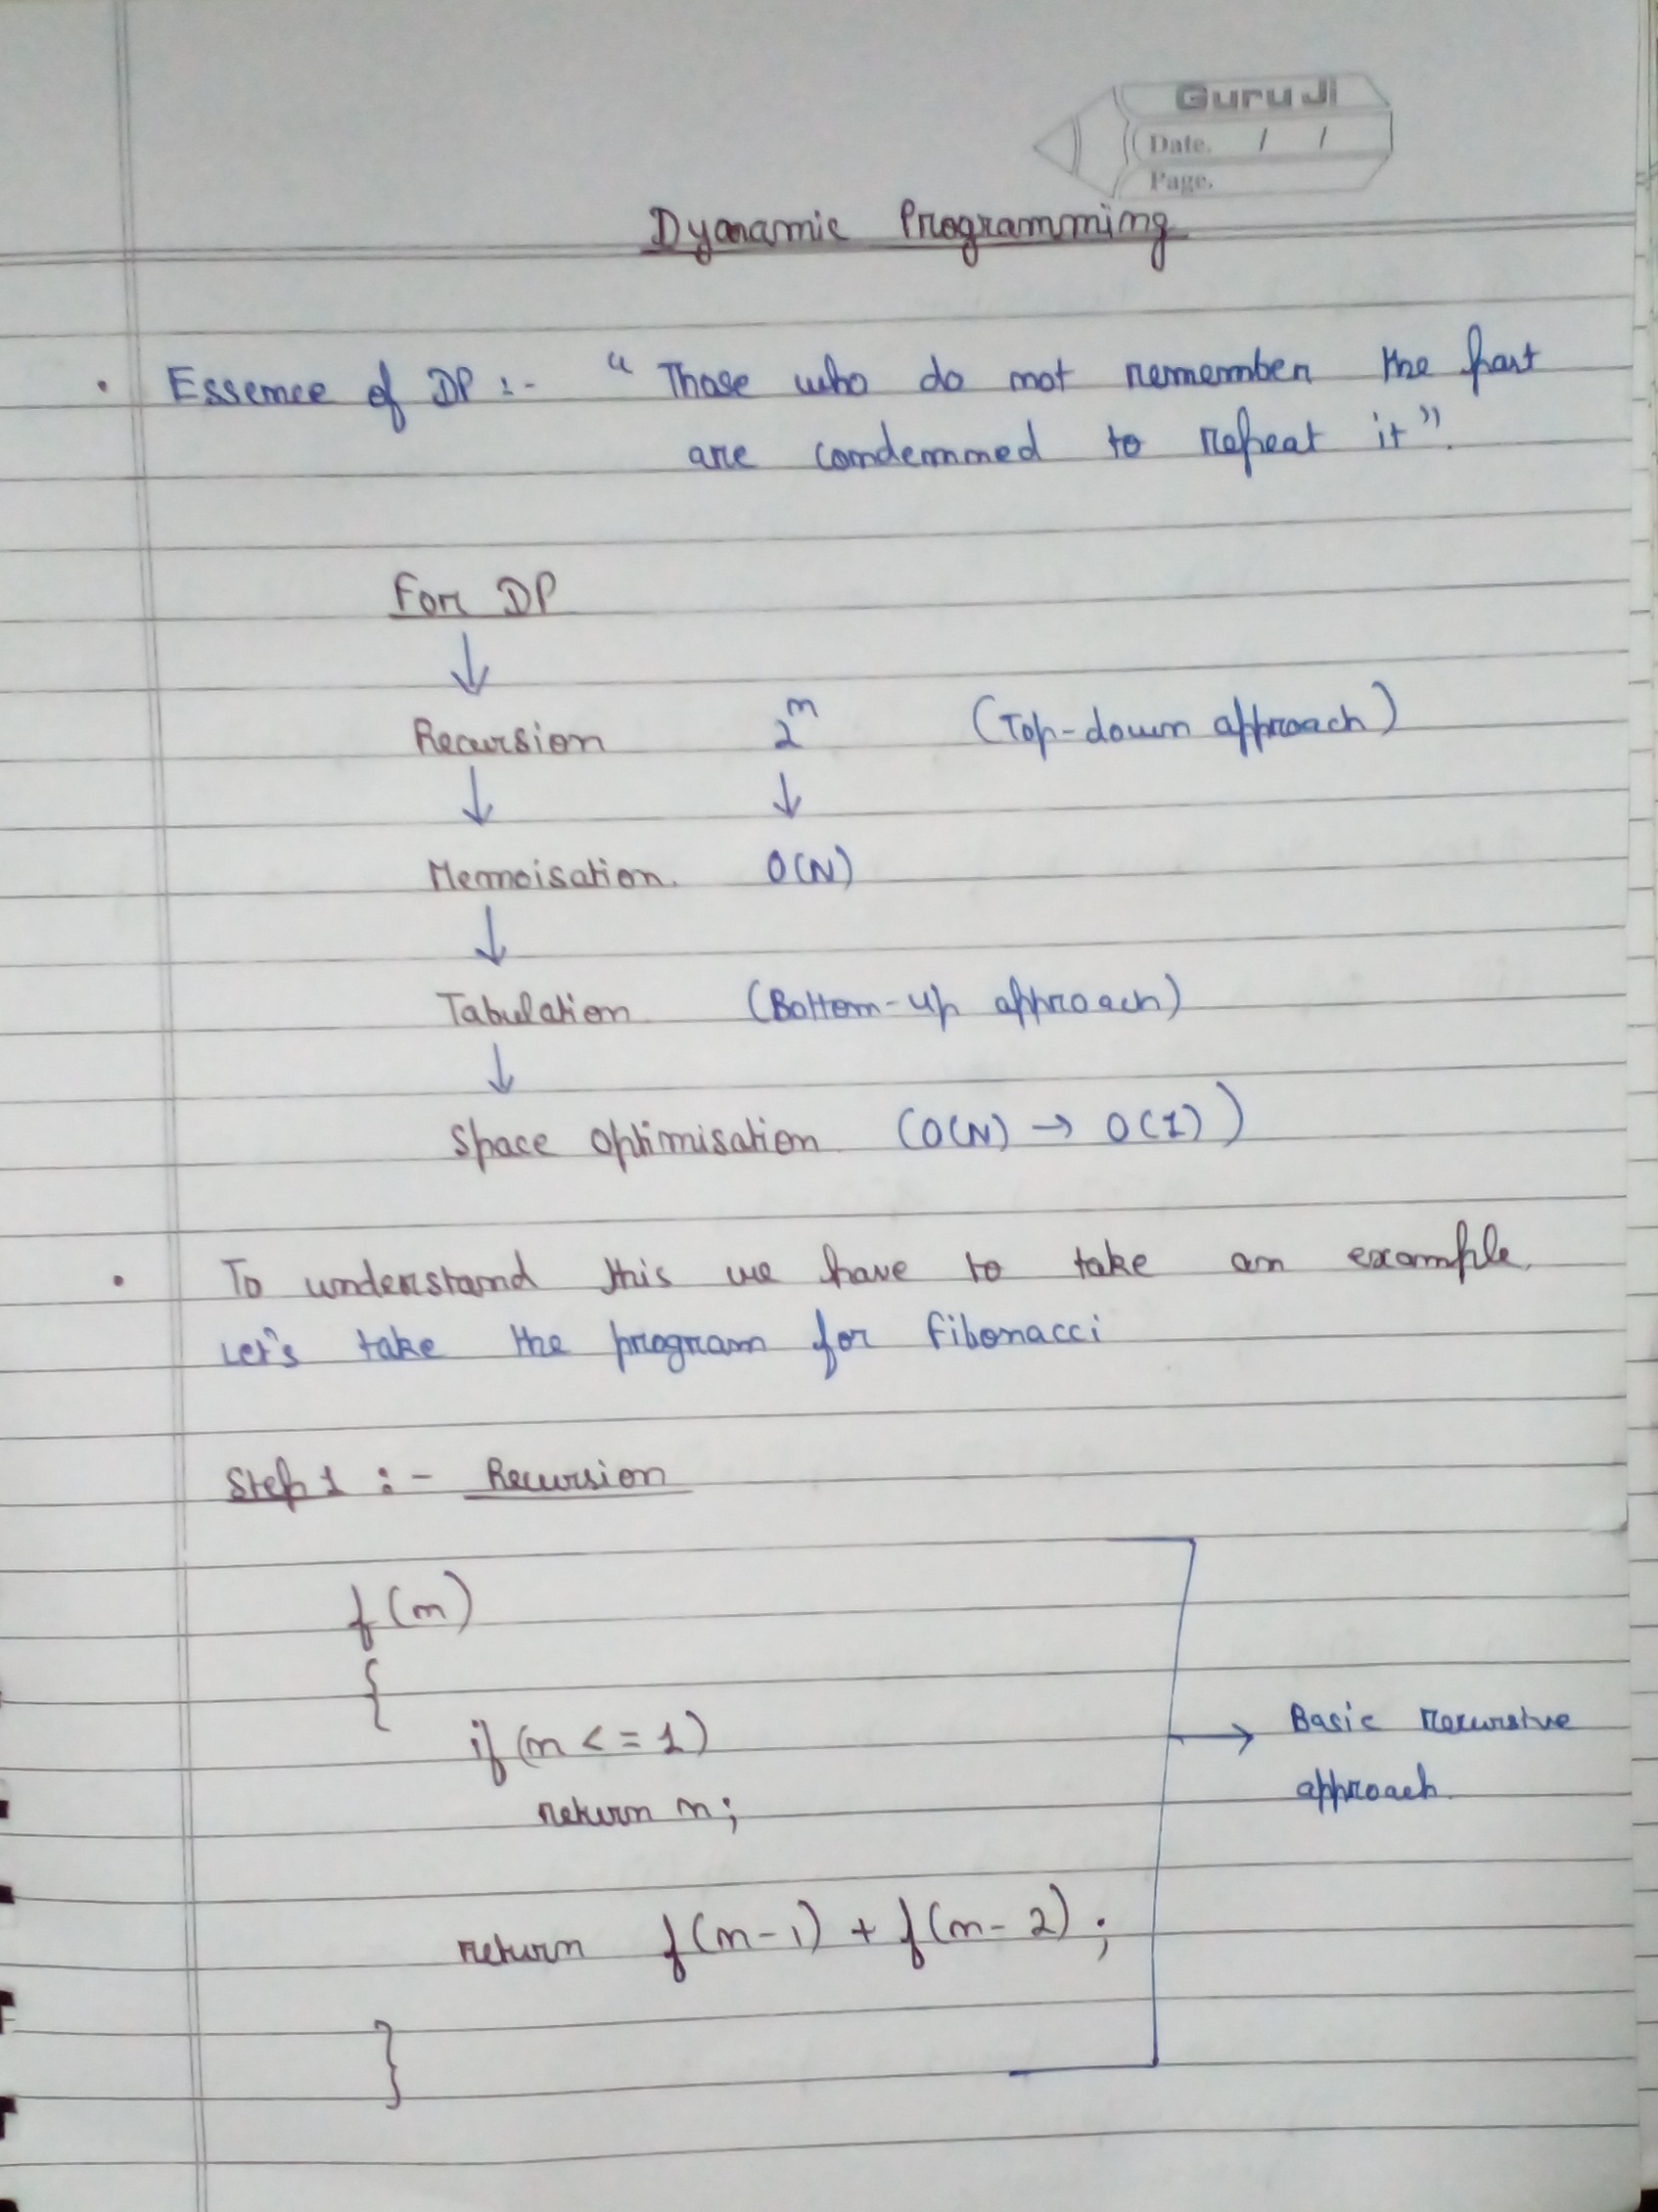 Guru Ji
Date. / /
Page.
Dynamic Programming
• Essence of DP :- " Those who do not remember the past
are condemned to repeat it".
For DP
↓
Recursion 2^n (Top-down approach)
↓ ↓
Memoisation. O(N)
↓
Tabulation (Bottom-up approach)
↓
Space Optimisation (O(N) → O(1))
• To understand this we have to take an example.
Let's take the program for fibonacci
Step 1 :- Recursion
f(n)
{
if (n <= 1)
return n;
→ Basic recursive
approach.
return f(n-1) + f(n-2);
}